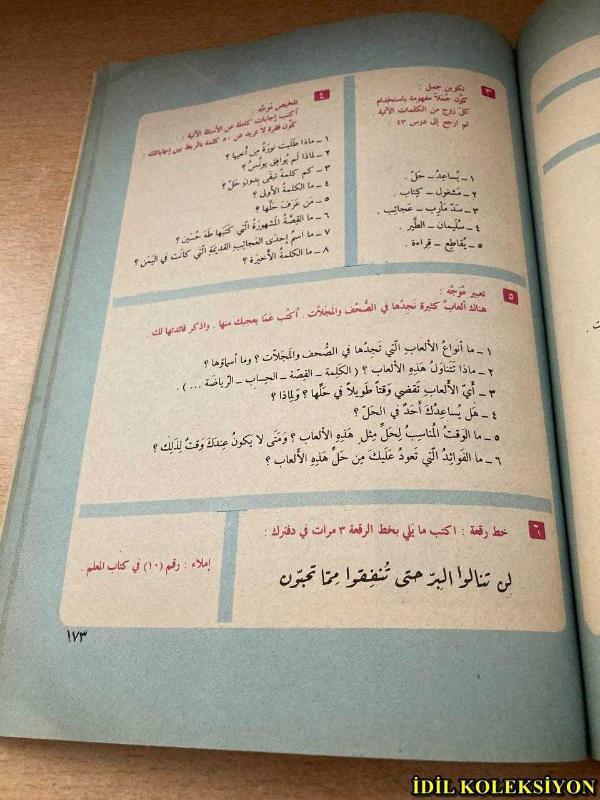 ٣
تكوين جمل :
كوّن جُملاً مفهومة باستخدام
كلّ زوج من الكلمات الآتية
ثم ارجع إلى درس ٤٣
١ – يُساعِدُ – حَلّ .
٢ – مَشغول – كِتاب .
٣ – سَدّ مَأرِب – عَجائب .
٤ – سُلَيمان – الطَّير .
٥ – يُقاطِع – قِراءة .
٤
تلخيص مُوجّه :
اكتب إجابات كاملة عن الأسئلة الآتية
كَوّن فقرة لا تزيد عن ٥٠ كلمة بالربط بين إجاباتك :
١ – ماذا طَلَبَت نورَةُ مِن أخيها ؟
٢ – لماذا لَم يُوافِق يونُسُ ؟
٣ – كَم كلمةً تبقّى بدون حَلّ ؟
٤ – ما الكلمةُ الأولى ؟
٥ – مَن عَرَفَ حَلَّها ؟
٦ – ما القِصَّةُ المَشهورَةُ الّتي كَتَبَها طَهَ حُسَين ؟
٧ – ما اسمُ إحدَى العَجائِبِ القَديمَةِ الّتي كانَت في اليَمَن ؟
٨ – ما الكَلِمَةُ الأخيرَة ؟
٥
تعبير مُوَجَّه :
هناك ألعابٌ كثيرة نَجِدُها في الصُّحُف والمَجَلاّت . اُكتُب عَمّا يعجبك منها . واذكر فائدتها لك
١ – ما أنواعُ الألعابِ الّتي تَجِدُها في الصُّحف والمَجَلاّت ؟ وما أسماؤها ؟
٢ – ماذا تَتَناوَلُ هَذِهِ الألعاب ؟ ( الكَلِمة – القِصّة – الحِساب – الرِّياضَة ... ) .
٣ – أَيّ الألعابِ تَقضي وَقتاً طَويلاً في حَلِّها ؟ وَلِماذا ؟
٤ – هَل يُساعِدُكَ أَحَدٌ في الحَلّ ؟
٥ – ما الوَقتُ المُناسِبُ لِحَلِّ مِثلِ هَذِهِ الألعاب ؟ وَمَتى لا يَكونُ عِندَكَ وَقتٌ لِذَلِكَ ؟
٦ – ما الفَوائِدُ الّتي تَعودُ عَلَيكَ مِن حَلّ هَذِهِ الألعاب ؟
٦
خط رقعة : اكتب ما يَلي بخط الرقعة ٣ مرات في دفترك :
لن تنالوا البرّ حتى تُنفِقوا مِمّا تحبّون
إملاء : رقم (١٠) في كتاب المعلم .
١٧٣
İDİL KOLEKSİYON